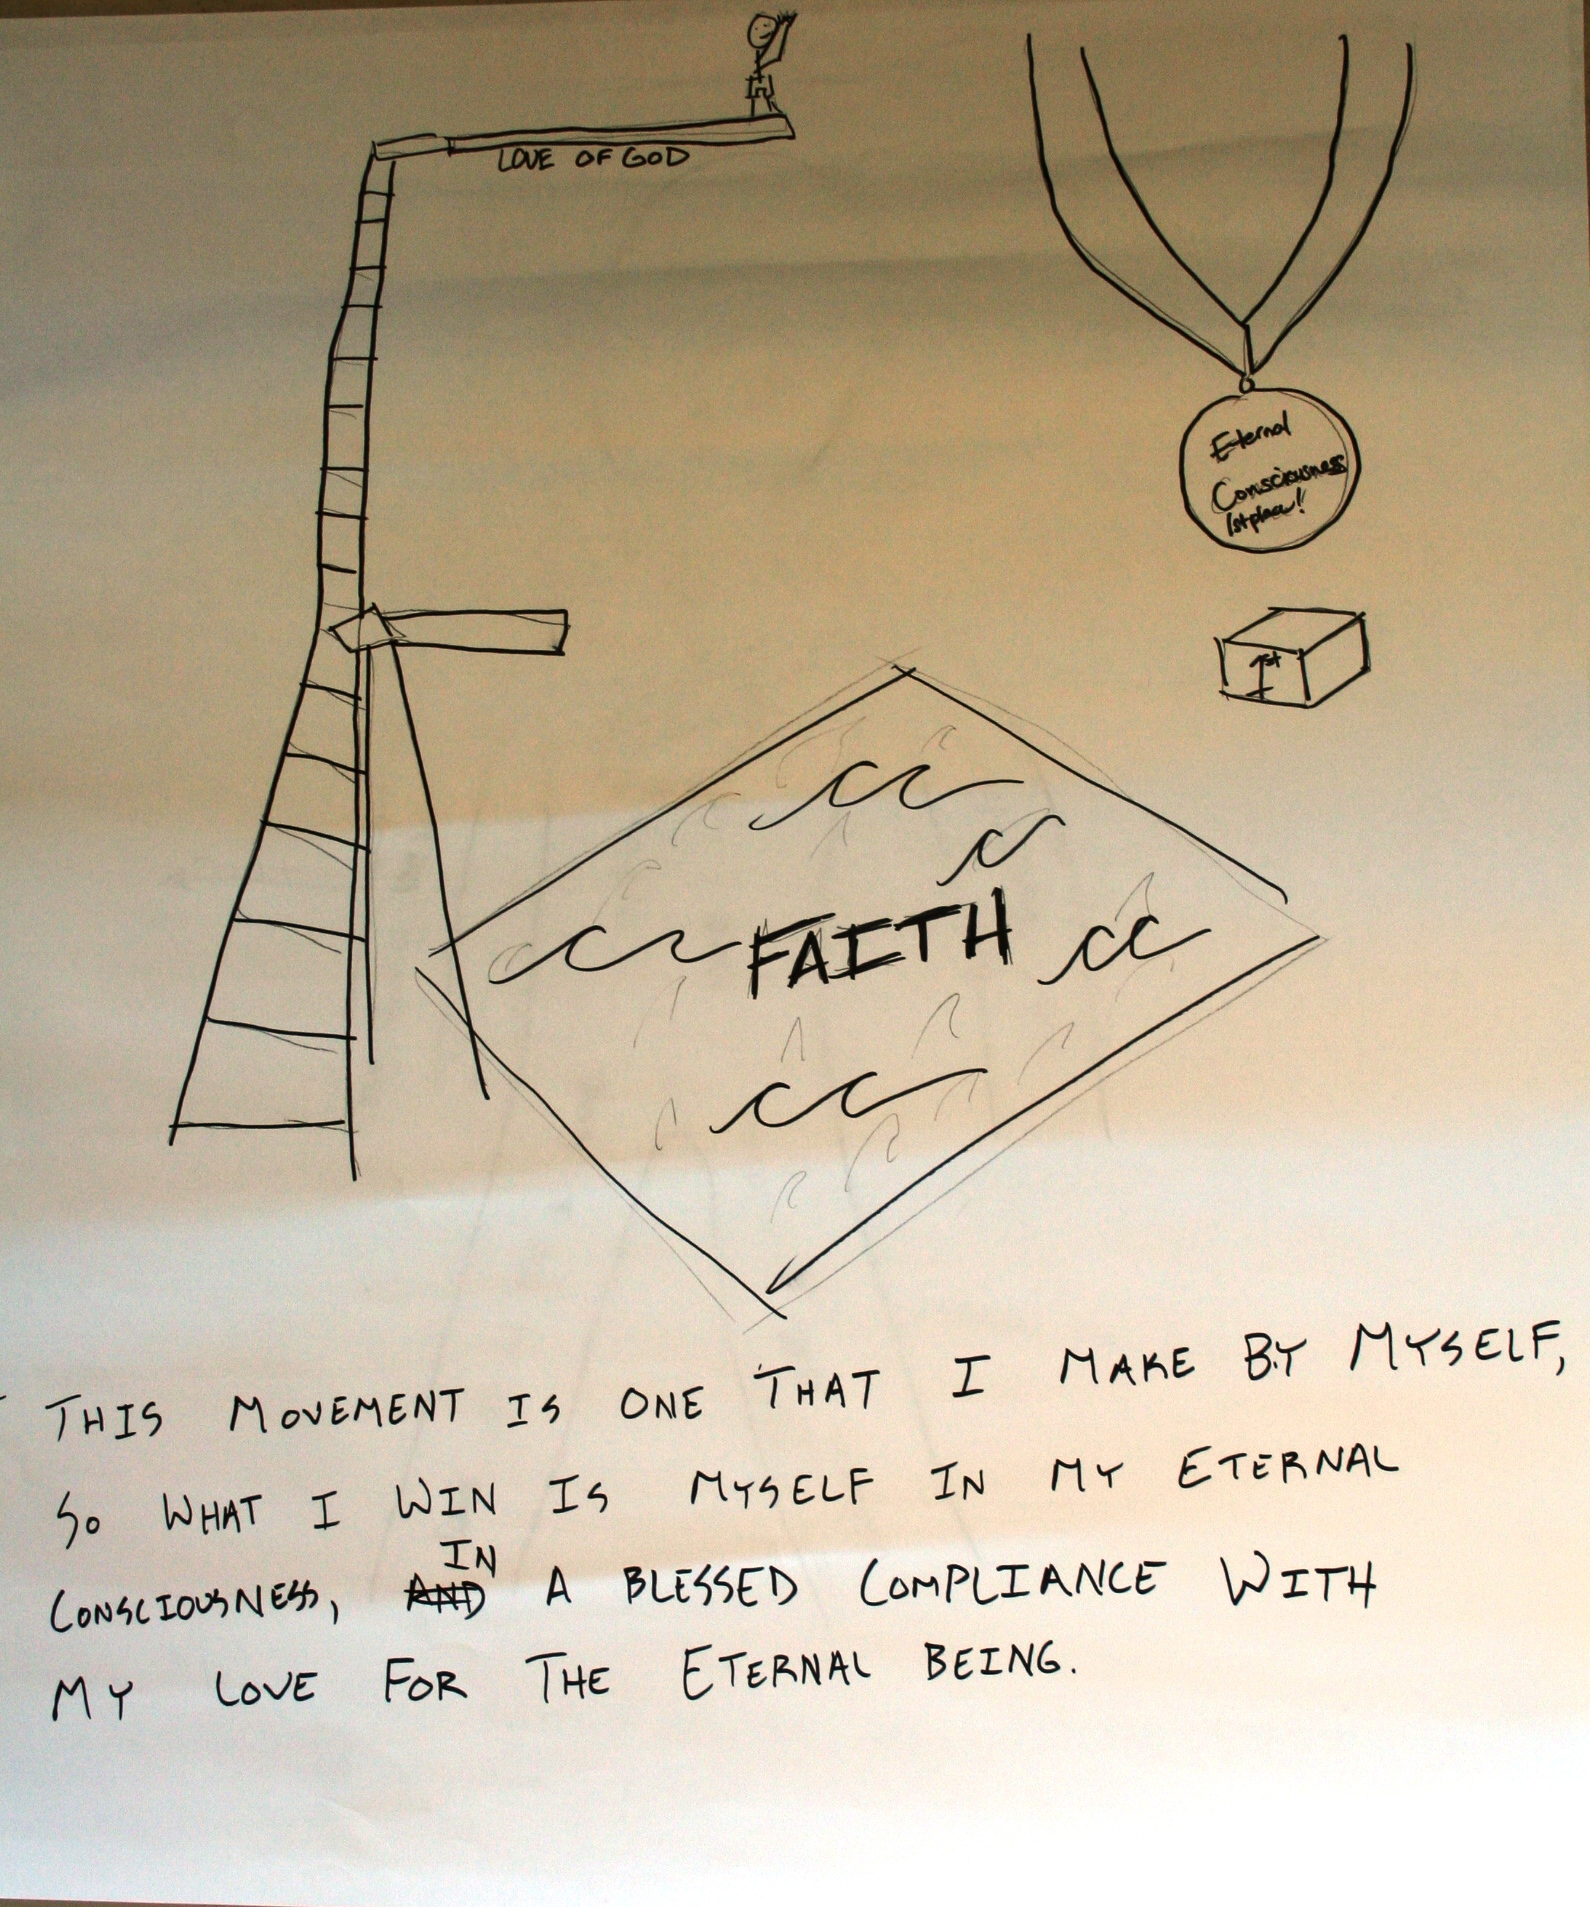 LOVE OF GOD
Eternal
Consciousness
1st place!
1st
FAITH
THIS MOVEMENT IS ONE THAT I MAKE BY MYSELF,
SO WHAT I WIN IS MYSELF IN MY ETERNAL
CONSCIOUSNESS, AND IN A BLESSED COMPLIANCE WITH
MY LOVE FOR THE ETERNAL BEING.